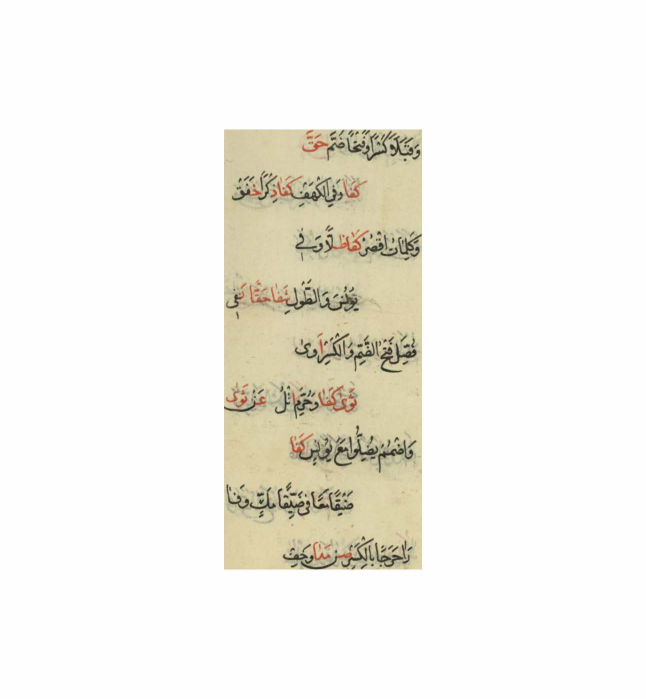 وَقِبَلًا كَسْرًا وَفَتْحًا ضُمَّ حَقّ
كَفَا وَفِي الْكَهْفِ كَفَا ذِكْرًا خَفَقْ
وَكَلِمَاتُ اقْصُرْ كَفَا ظِلًّا وَفِي
يُونُسَ وَالطَّوْلِ شَفَا حَقًّا نَفِي
فُصِّلَ فَتْحُ الضَّمِّ وَالْكَسْرِ أَوَى
ثَوَى كَفَا وَحُرِّمَ اتْلُ عَنْ ثَوَى
وَاضْمُمْ يُضِلُّوا مَعَ يُونُسٍ كَفَا
ضَيْقًا مَعًا فِي ضَيِّقًا مَكٍّ وَفَا
رَا حَرَجًا بِالْكَسْرِ صُنْ مَدًا وَخِفّ